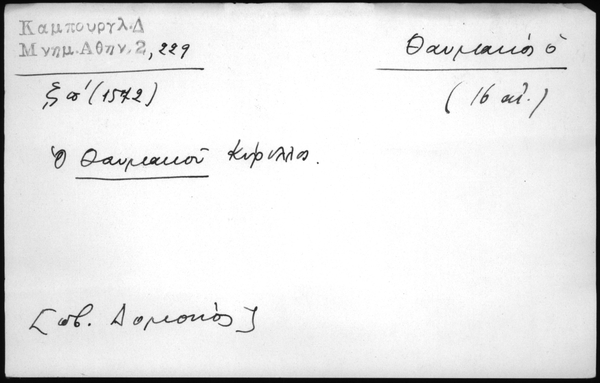 Καμπουργλ.Δ
Μνημ.Αθην.2, 229
Θαυμακός ὁ
ξπ' (1572)
(16 αἰ.)
Ὁ Θαυμακοῦ Κύριλλος.
[πβ. Δομοκός]